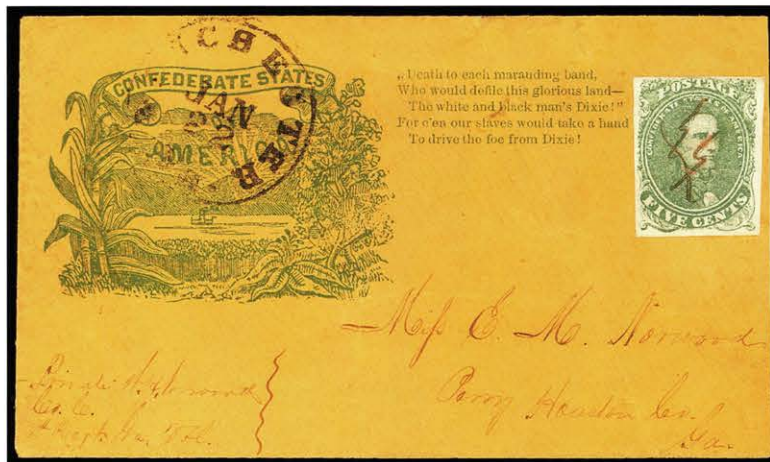 CONFEDERATE STATES
AMERICA
CHESTER
JAN
„Death to each marauding band,
Who would defile this glorious land—
The white and black man's Dixie!"
For e'en our slaves would take a hand
To drive the foe from Dixie!
POSTAGE
CONFEDERATE STATES OF AMERICA
FIVE CENTS
Miss E. M. Norwood
Perry Houston Co.
Ga.
Private Norwood
Co. C.
Regt Ga. Vol.